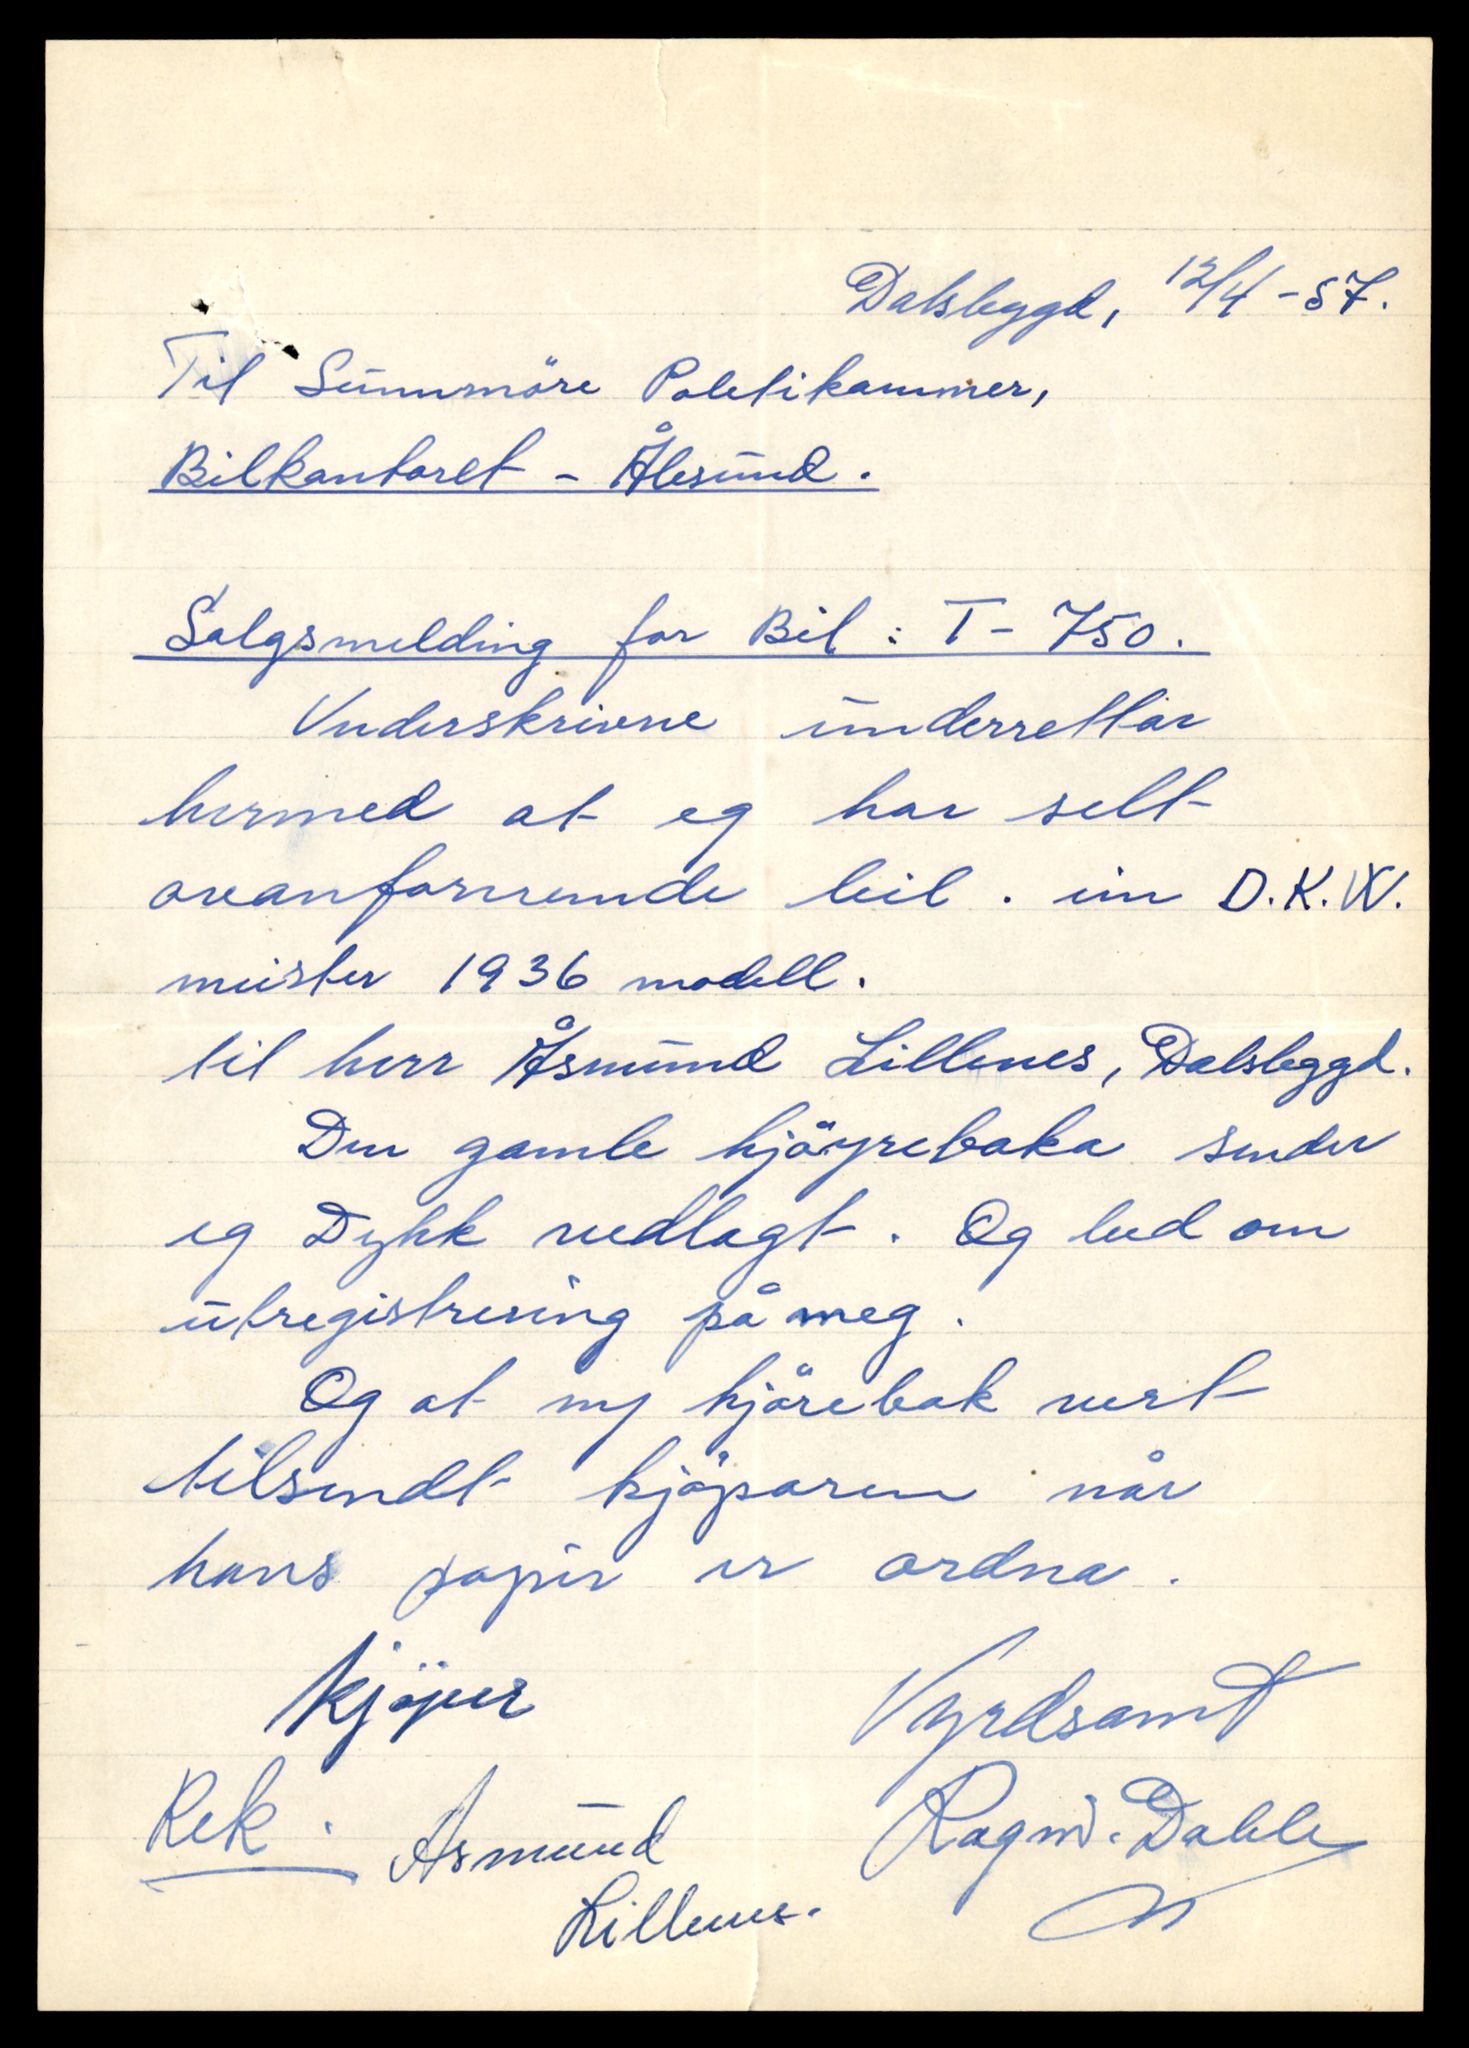 Dalsbygd, 12/4 - 57.
Til Sunnmöre Politikammer,
Bilkontoret - Ålesund.
Salgsmelding for Bil : T - 750.
Underskrivne underrettar
hermed at eg har sellt
ovanfornemde bil. ein D.K.W.
meister 1936 modell.
til herr Åsmund Lillenes, Dalsbygd.
Den gamle kjöyreboka sender
eg Dykk vedlagt. Og bed om
utregistrering på meg.
Og at ny kjörebok vert
tilsendt kjöparen når
hans papir er ordna.
Kjöper
Vyrdsamt
Rek. Asmund
Lillenes.
Ragnv. Dahle